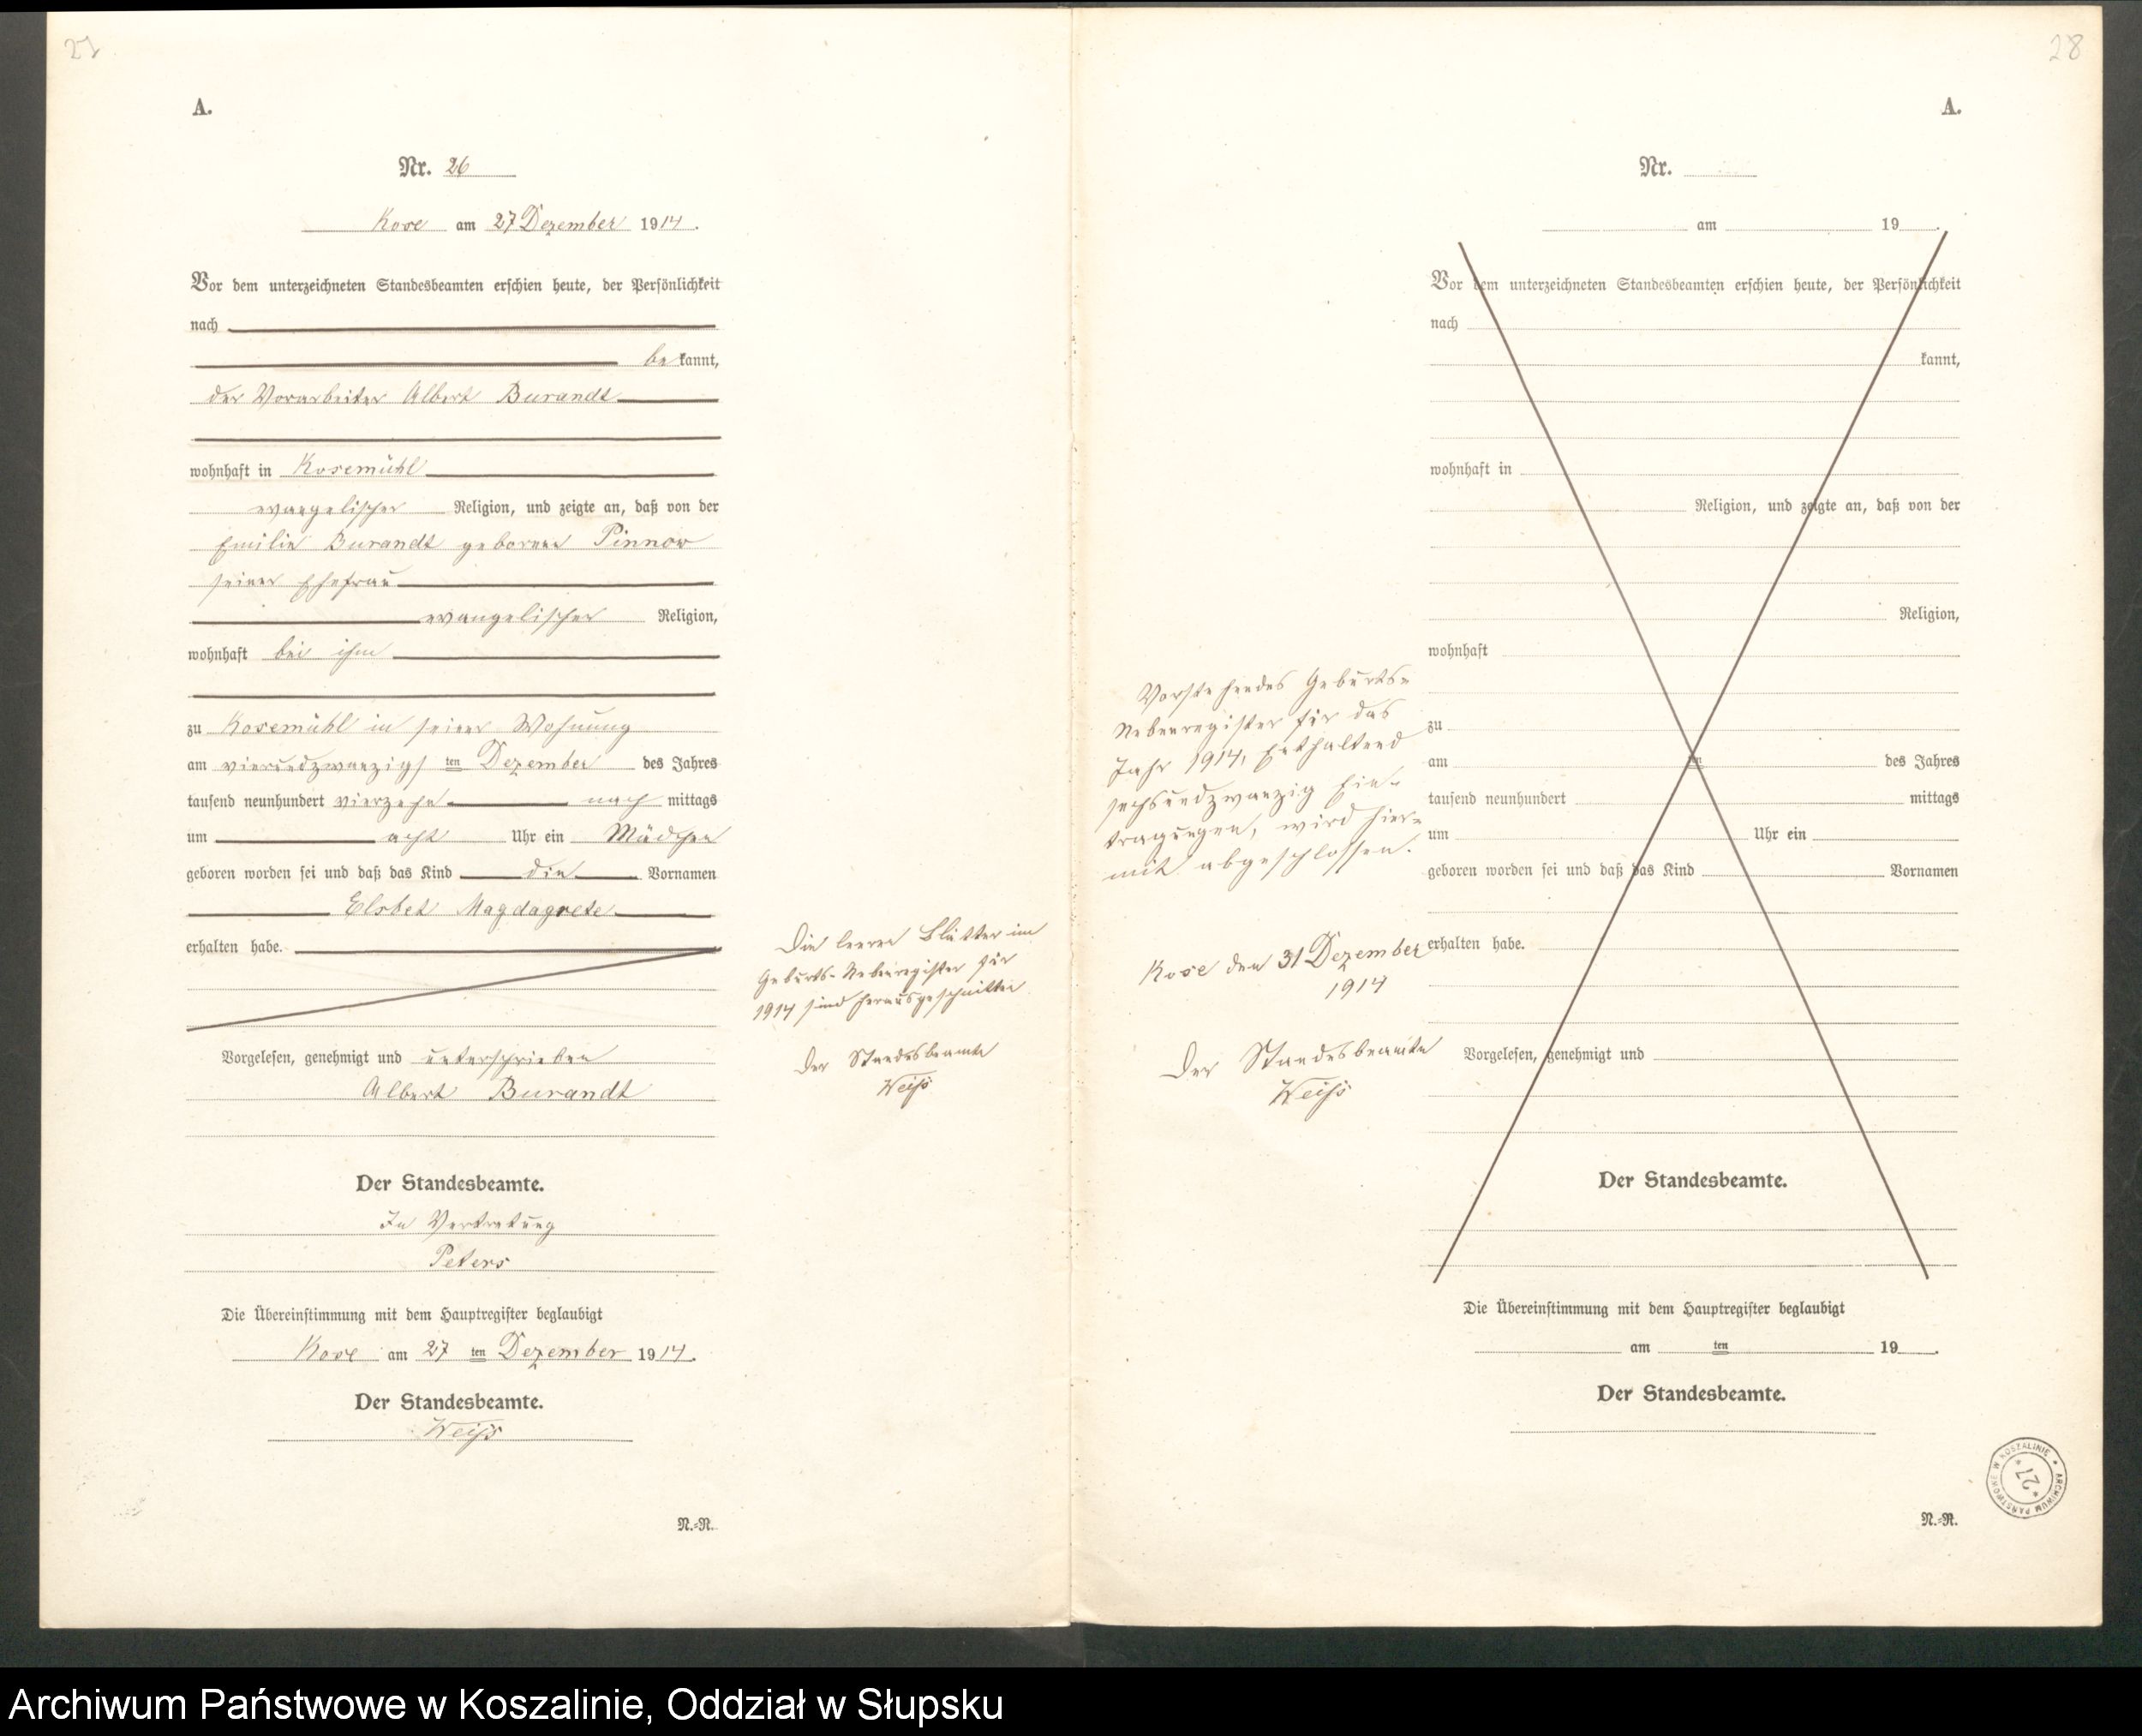 27
A.
Nr. 26
Kose am 27 Dezember 1914.
Vor dem unterzeichneten Standesbeamten erschien heute, der Persönlichkeit
nach
be kannt,
der Vorarbeiter Albert Burandt
wohnhaft in Kosemühl
evangelischer Religion, und zeigte an, daß von der
Emilie Burandt geborene Pinnow
seiner Ehefrau
evangelischer Religion,
wohnhaft bei ihm
zu Kosemühl in seiner Wohnung
am vierundzwanzigs ten Dezember des Jahres
tausend neunhundert vierzehn nach mittags
um acht Uhr ein Mädchen
geboren worden sei und daß das Kind die Vornamen
Elsbet Magdagrete
erhalten habe.
Vorgelesen, genehmigt und unterschrieben
Albert Burandt
Der Standesbeamte.
In Vertretung
Peters
Die Übereinstimmung mit dem Hauptregister beglaubigt
Kose am 27 ten Dezember 1914.
Der Standesbeamte.
Weiß
N.=R.
Die leeren Blätter im
Geburts-Nebenregister für
1914 sind herausgeschnitten
Der Standesbeamte
Weiß
28
A.
Vorstehendes Geburts=
Nebenregister für das
Jahr 1914, enthaltend
sechsundzwanzig Ein=
tragungen, wird hier=
mit abgeschlossen.
Kose den 31 Dezember
1914
Der Standesbeamte
Weiß
Nr.
am 19 .
Vor dem unterzeichneten Standesbeamten erschien heute, der Persönlichkeit
nach
kannt,
wohnhaft in
Religion, und zeigte an, daß von der
Religion,
wohnhaft
zu
am ten des Jahres
tausend neunhundert mittags
um Uhr ein
geboren worden sei und daß das Kind Vornamen
erhalten habe.
Vorgelesen, genehmigt und
Der Standesbeamte.
Die Übereinstimmung mit dem Hauptregister beglaubigt
am ten 19 .
Der Standesbeamte.
N.=R.
ARCHIWUM PAŃSTWOWE W KOSZALINIE * 27 *
Archiwum Państwowe w Koszalinie, Oddział w Słupsku